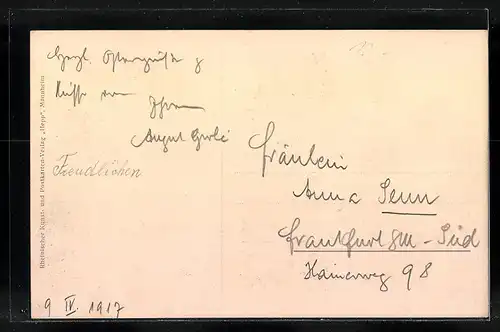 Herzl. Ostergrüße &
Küsse von
Ihrem
August
Freudlichen
Fräulein
Anna Senn
Frankfurt a/M - Süd
Hainerweg 98
9 IV. 1917
Rheinischer Kunst- und Postkarten-Verlag „Hepp“, Mannheim